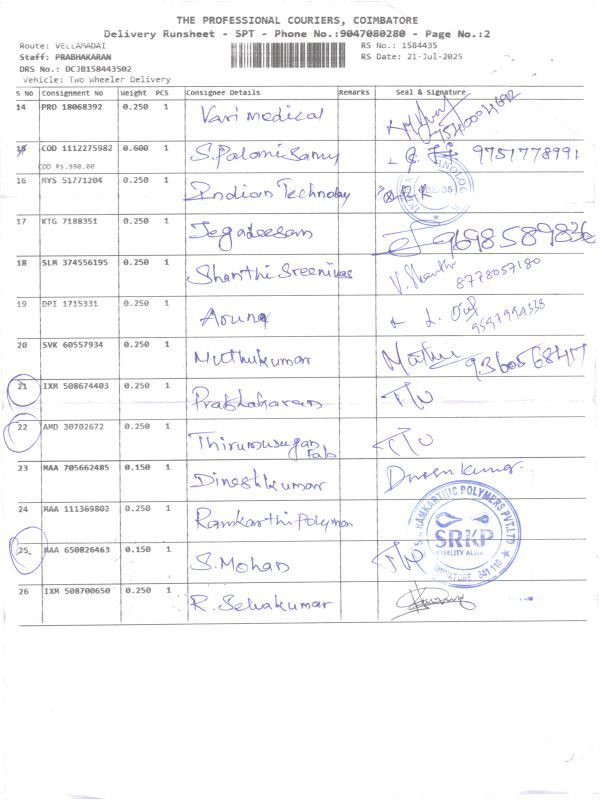 THE PROFESSIONAL COURIERS, COIMBATORE
Delivery Runsheet - SPT - Phone No.:9047080280 - Page No.:2
Route: VELLAMADAI RS No.: 1584435
Staff: PRABHAKARAN RS Date: 21-Jul-2025
DRS No.: DCJB158443502
Vehicle: Two Wheeler Delivery
S No Consignment No Weight PCS Consignee Details Remarks Seal & Signature
14 PRO 18068392 0.250 1 Vari medical
15 COD 1112275982 0.600 1 S. Palanisamy 9751778991
COD Rs.990.00
16 MYS 51771204 0.250 1 Indian Technology
17 KTG 7188351 0.250 1 Jegadeesan 9698589836
18 SLM 374556195 0.250 1 Shanthi Sreenivas V. Shanthi 8778057180
19 DPI 1715331 0.250 1 Aruna
20 SVK 60557934 0.250 1 Muthukumar Muthu 9360568417
21 IXM 508674403 0.250 1 Prabhakaran
22 AMD 30702672 0.250 1 Thirumurugan Fab
23 MAA 705662485 0.150 1 Dineshkumar
24 MAA 111369802 0.250 1 Ramkarthi Polymer
RAMKARTHIC POLYMERS PVT.LTD
SRKP
QUALITY ALWAYS
COIMBATORE 641 110
25 MAA 650826463 0.150 1 S. Mohan
26 IXM 508700650 0.250 1 R. Selvakumar